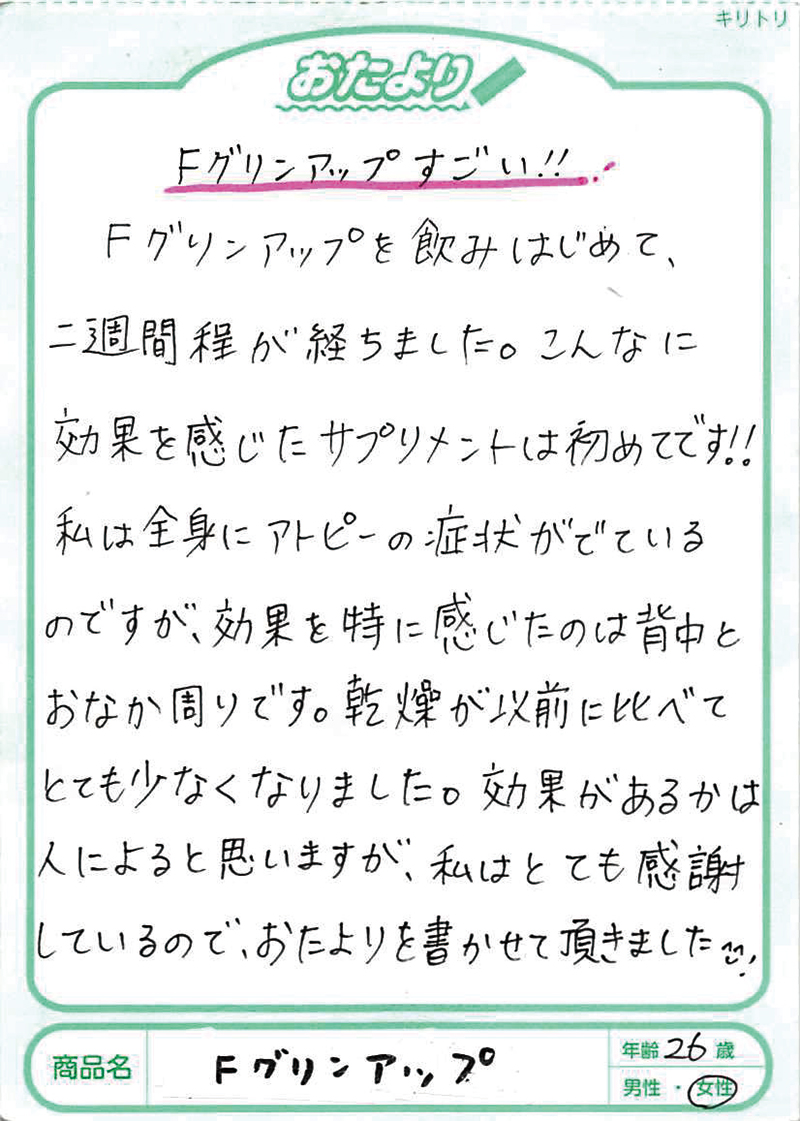 キリトリ
おたより
Fグリンアップすごい!!
Fグリンアップを飲みはじめて、
二週間程が経ちました。こんなに
効果を感じたサプリメントは初めてです!!
私は全身にアトピーの症状がでている
のですが、効果を特に感じたのは背中と
おなか周りです。乾燥が以前に比べて
とても少なくなりました。効果があるかは
人によると思いますが、私はとても感謝
しているので、おたよりを書かせて頂きました
商品名 Fグリンアップ 年齢 26 歳
男性・女性